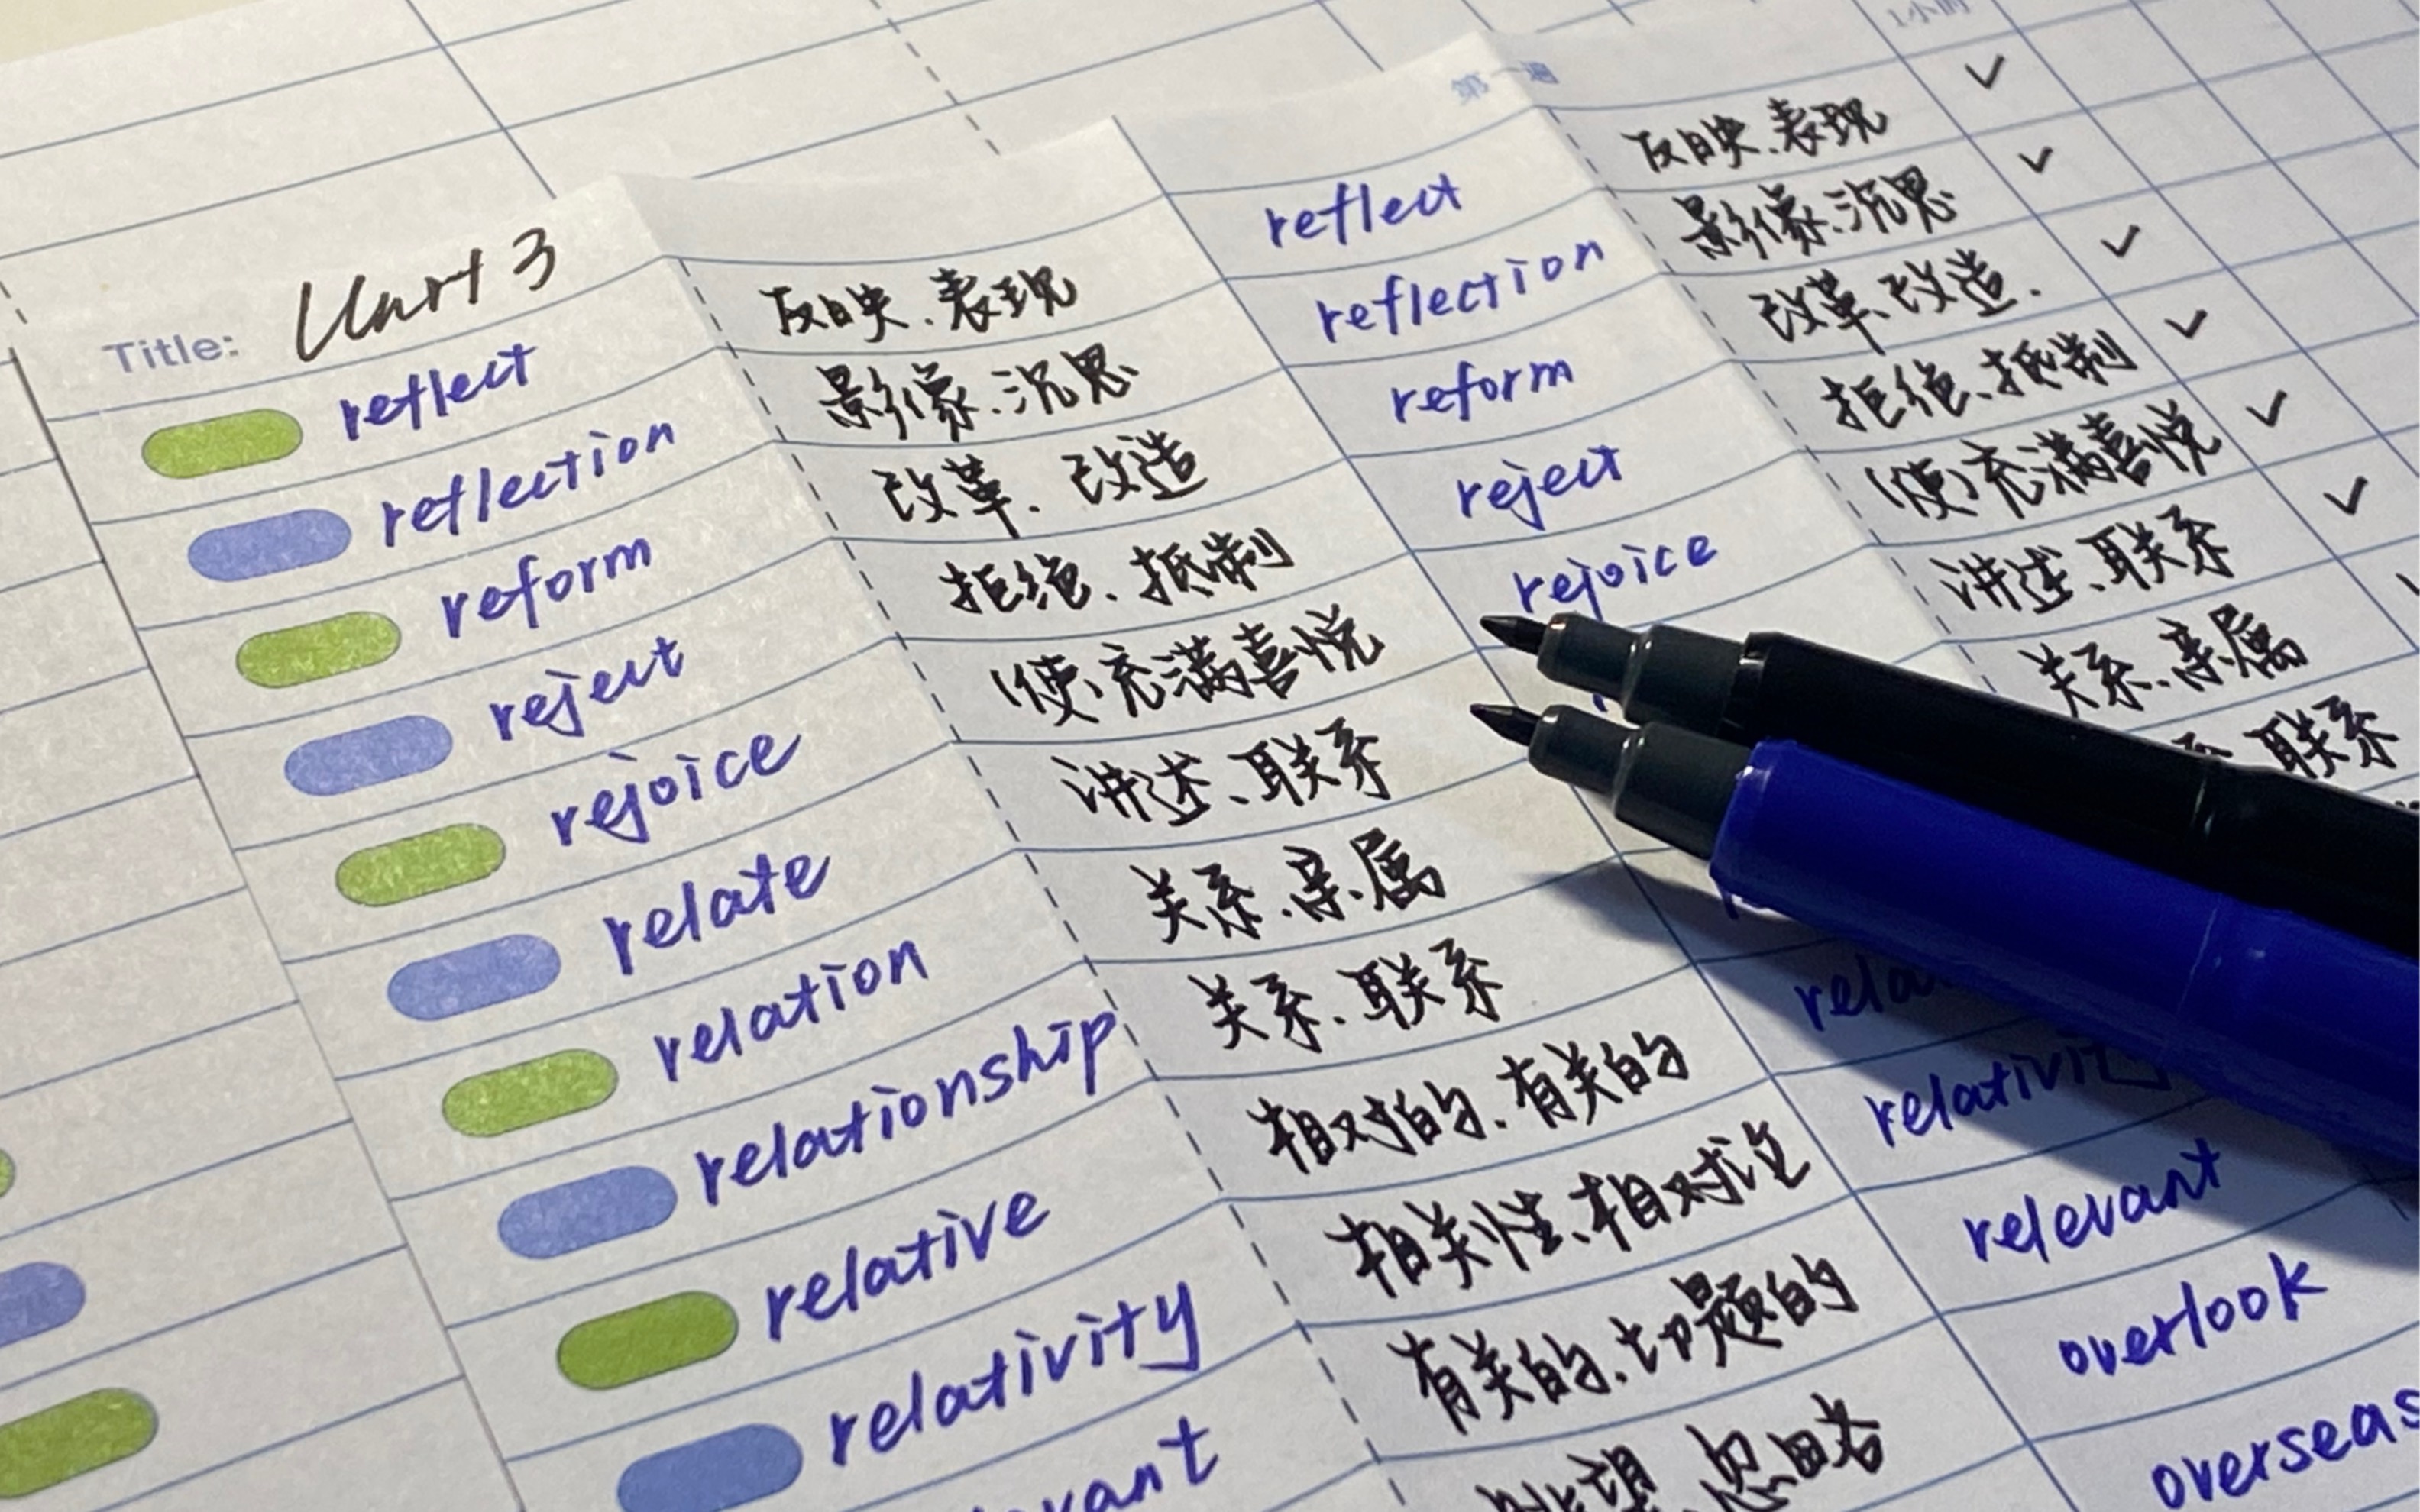 1小时
第一遍
Title: Unit 3
reflect 反映、表现 reflect 反映、表现 ✓
reflection 影像、沉思 reflection 影像、沉思 ✓
reform 改革、改造 reform 改革、改造. ✓
reject 拒绝、抵制 reject 拒绝、抵制 ✓
rejoice (使)充满喜悦 rejoice (使)充满喜悦 ✓
relate 讲述、联系 讲述、联系 ✓
relation 关系、亲属 关系、亲属
relationship 关系、联系 联系
relative 相对的、有关的
relativity 相关性、相对论 relativity
有关的、切题的 relevant
眺望、忽略 overlook
overseas